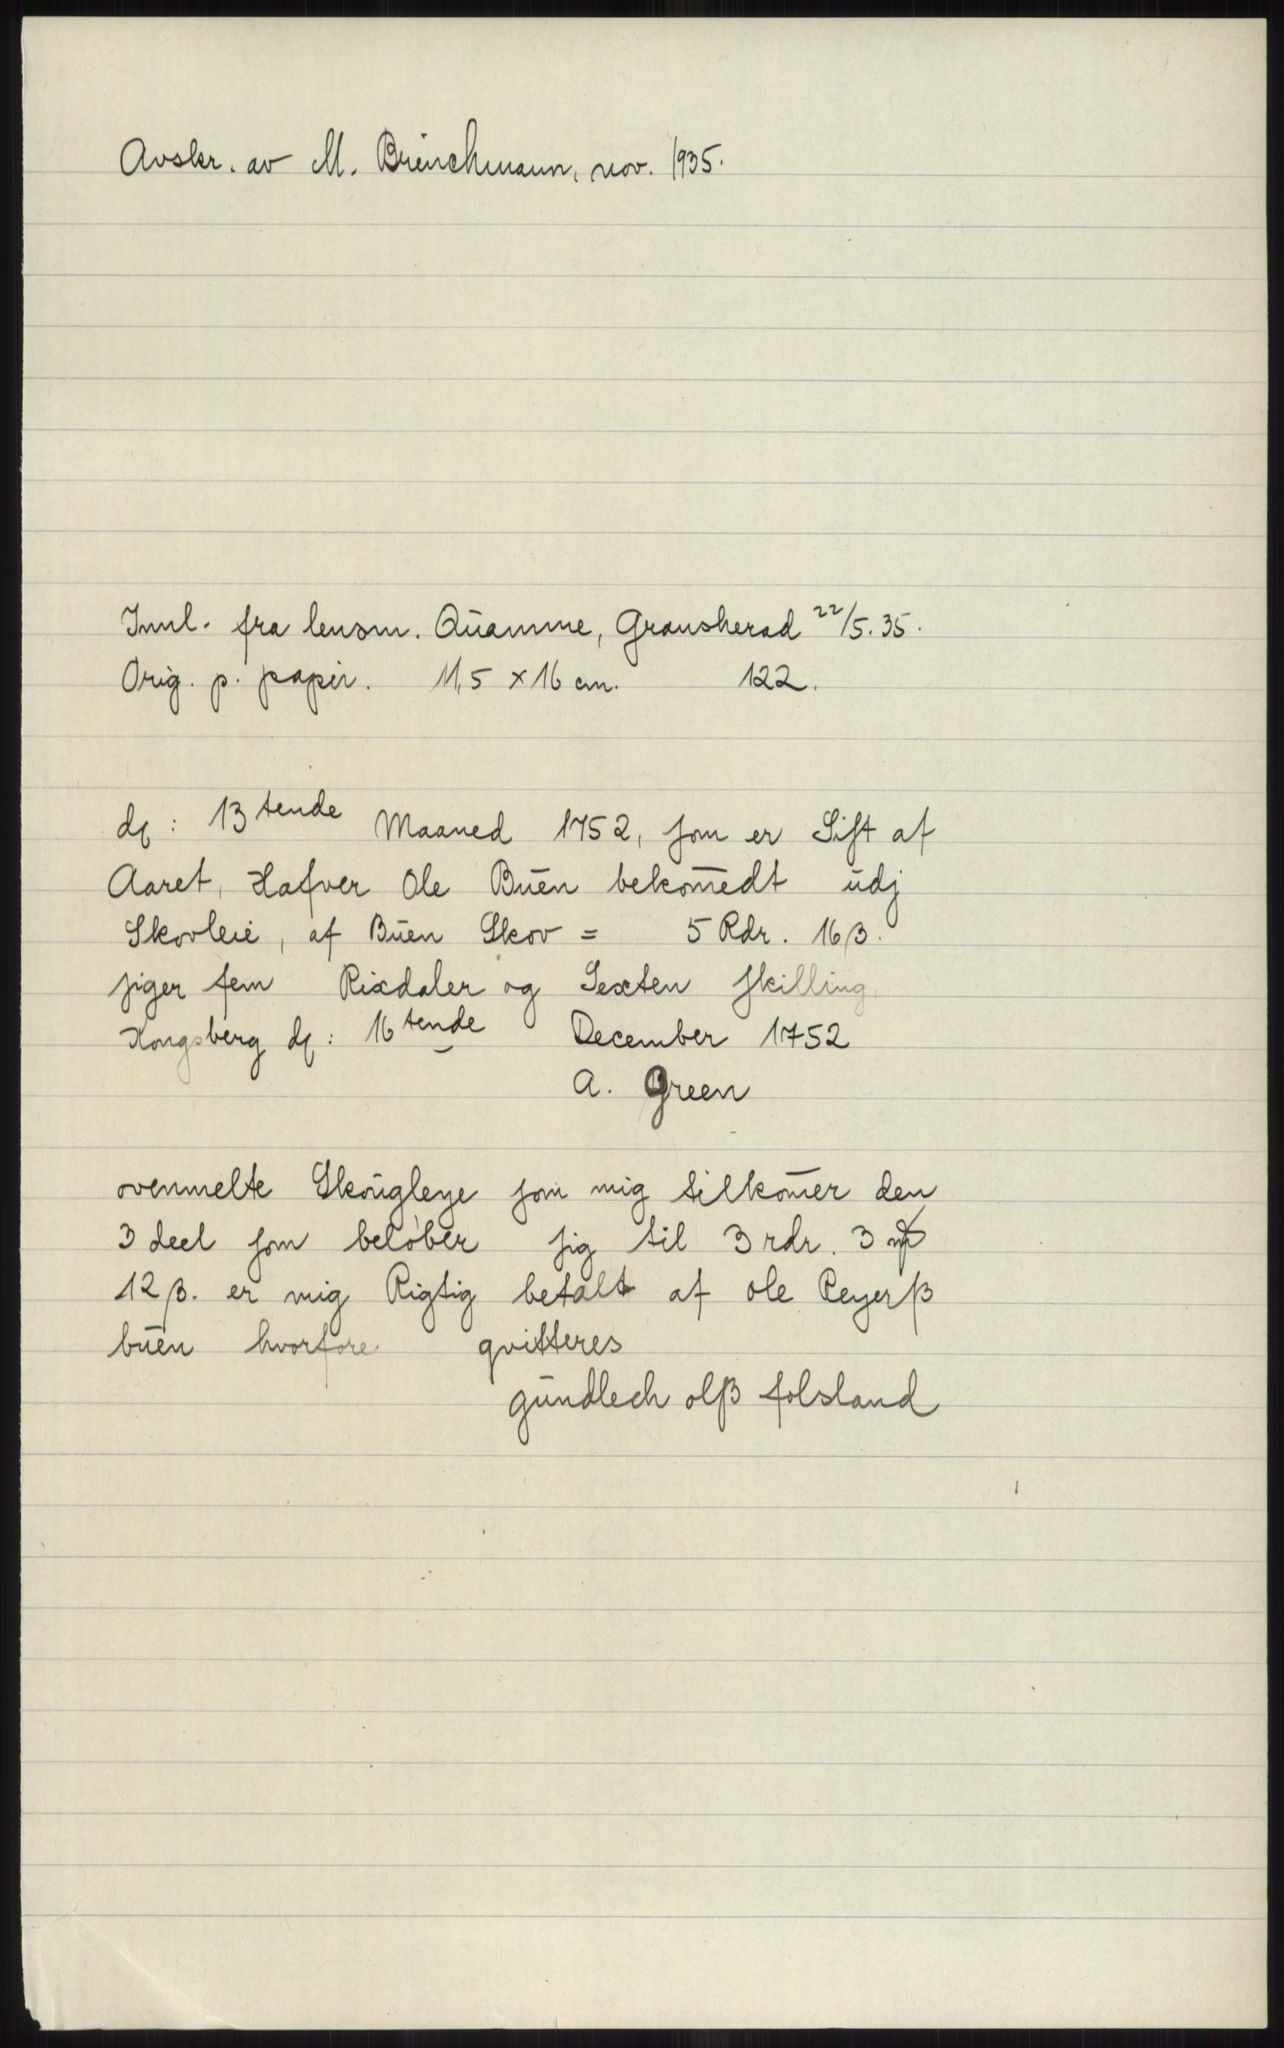 Avskr. av M. Brinchmann, nov. 1935.
Innl. fra lensm. Quamme, Gransherad 22/5. 35.
Orig. p. papir. 11,5 x 16 cm. 122.
dɟ: 13tende Maaned 1752, som er Sift af
Aaret, Hafver Ole Buen bekom̄edt udj
Skovleie, af Buen Skov = 5 Rdr. 16 β.
siger fem Rixdaler og Sexten skilling
Kongsberg dɟ: 16tende December 1752
A. Green
ovenmelte Skougleye som mig tilkom̄er den
3 deel som beløber sig til 3 rdr. 3 mɟ
12 β. er mig Rigtig betalt af ole Reyerß
buen hvorfore qvitteres
gundlech olß folsland